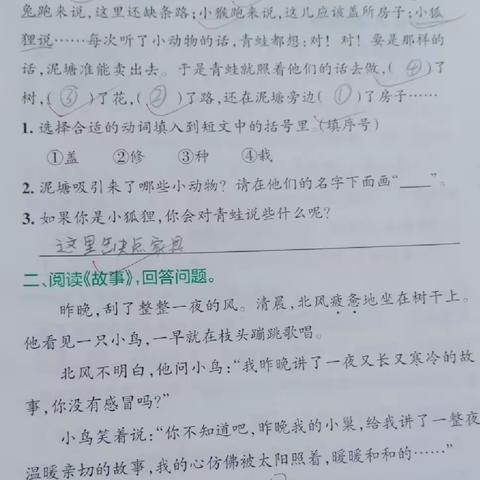 兔跑来说，这里还缺条路；小猴跑来说，这儿应该盖所房子；小狐
狸说……每次听了小动物的话，青蛙都想：对！对！要是那样的
话，泥塘准能卖出去。于是青蛙就照着他们的话去做，（ ④ ）了
树，（ ③ ）了花，（ ② ）了路，还在泥塘旁边（ ① ）了房子……
1. 选择合适的动词填入到短文中的括号里。（填序号）
①盖 ②修 ③种 ④栽
2. 泥塘吸引来了哪些小动物？请在他们的名字下面画“____”。
3. 如果你是小狐狸，你会对青蛙说些什么呢？
这里缺点家具
二、阅读《故事》，回答问题。
昨晚，刮了整整一夜的风。清晨，北风疲惫地坐在树干上。
他看见一只小鸟，一早就在枝头蹦跳歌唱。
北风不明白，他问小鸟：“我昨晚讲了一夜又长又寒冷的故
事，你没有感冒吗？”
小鸟笑着说：“你不知道吧，昨晚我的小巢，给我讲了一整夜
温暖亲切的故事，我的心仿佛被太阳照着，暖暖和和的……”